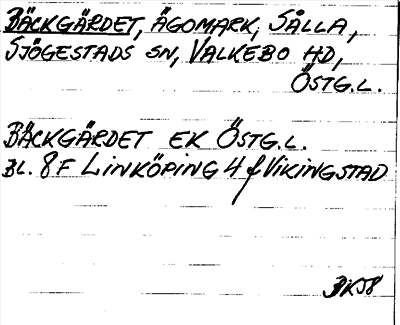 BÄCKGÄRDET, ÄGOMARK, SÄLLA,
SJÖGESTADS SN, VALKEBO HD,
ÖSTG.L.
BÄCKGÄRDET EK ÖSTG.L.
BL. 8F LINKÖPING 4 f VIKINGSTAD